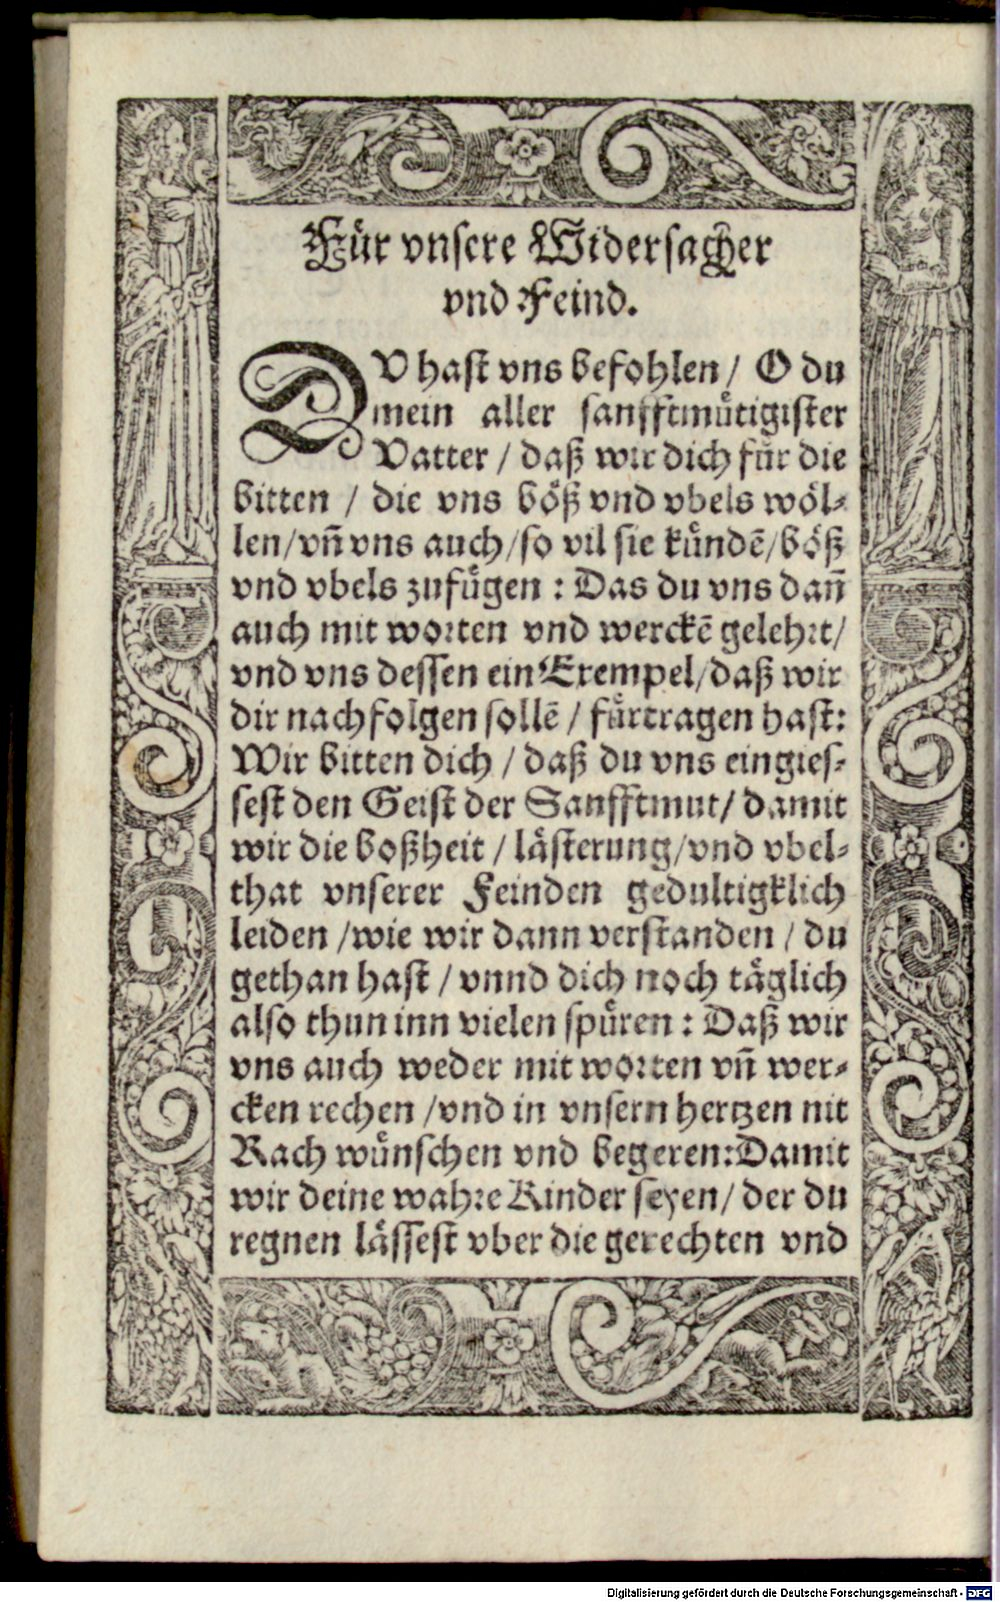 Für vnsere Widersacher
vnd Feind.
DV hast vns befohlen / O du
mein aller sanfftmuͤtigister
Vatter / daß wir dich fuͤr die
bitten / die vns boͤß vnd vbels woͤl-
len/vn̄ vns auch/so vil sie kuͤndē/boͤß
vnd vbels zufuͤgen : Das du vns dañ
auch mit worten vnd werckē gelehrt/
vnd vns dessen ein Exempel/daß wir
dir nachfolgen sollē / fuͤrtragen hast:
Wir bitten dich / daß du vns eingies-
sest den Geist der Sanfftmut/ damit
wir die boßheit / laͤsterung/vnd vbel-
that vnserer Feinden gedultigklich
leiden /wie wir dann verstanden / du
gethan hast / vnnd dich noch taͤglich
also thun inn vielen spuͤren : Daß wir
vns auch weder mit worten vn̄ wer-
cken rechen /vnd in vnsern hertzen nit
Rach wuͤnschen vnd begeren:Damit
wir deine wahre Kinder seyen/ der du
regnen laͤssest vber die gerechten vnd
Digitalisierung gefördert durch die Deutsche Forschungsgemeinschaft - DFG